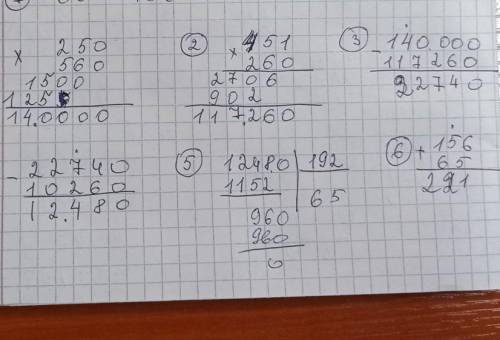 × 250
560
1500
125
14.0000
② × 451
260
2706
902
117.260
③ - 140.000
117260
22740
- 22740
10260
12.480
⑤ 12480 | 192
1152 | 65
960
960
0
⑥ + 156
65
221